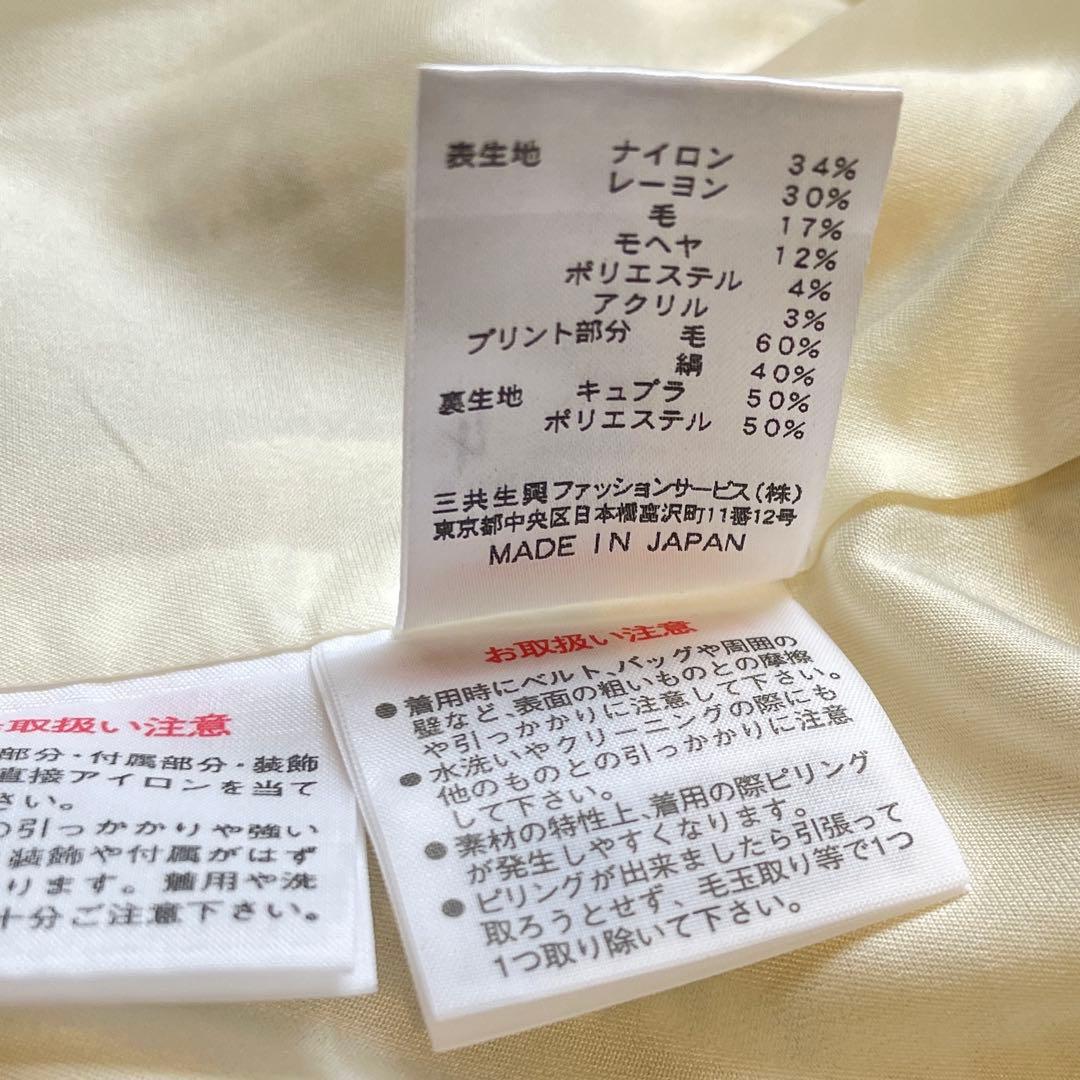 表生地 ナイロン 34%
レーヨン 30%
毛 17%
モヘヤ 12%
ポリエステル 4%
アクリル 3%
プリント部分 毛 60%
絹 40%
裏生地 キュプラ 50%
ポリエステル 50%
三共生興ファッションサービス(株)
東京都中央区日本橋富沢町11番12号
MADE IN JAPAN
お取扱い注意
●着用時にベルト、バッグや周囲の
壁など、表面の粗いものとの摩擦
や引っかかりに注意して下さい。
●水洗いやクリーニングの際にも
他のものとの引っかかりに注意
して下さい。
●素材の特性上、着用の際ピリング
が発生しやすくなります。
●ピリングが出来ましたら引張って
取ろうとせず、毛玉取り等で1つ
1つ取り除いて下さい。
取扱い注意
部分・付属部分・装飾
直接アイロンを当て
さい。
の引っかかりや強い
装飾や付属がはず
ります。着用や洗
十分ご注意下さい。